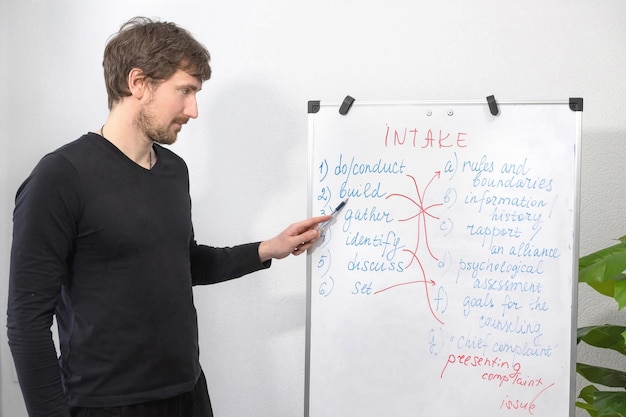 INTAKE
1) do/conduct
2) build
gather
identify
5) discuss
6) set
a) rules and
boundaries
b) information/
history
c) rapport
an alliance
d) psychological
assessment
f) goals for the
counseling
f) "Chief complaint"
presenting
complaint
issue